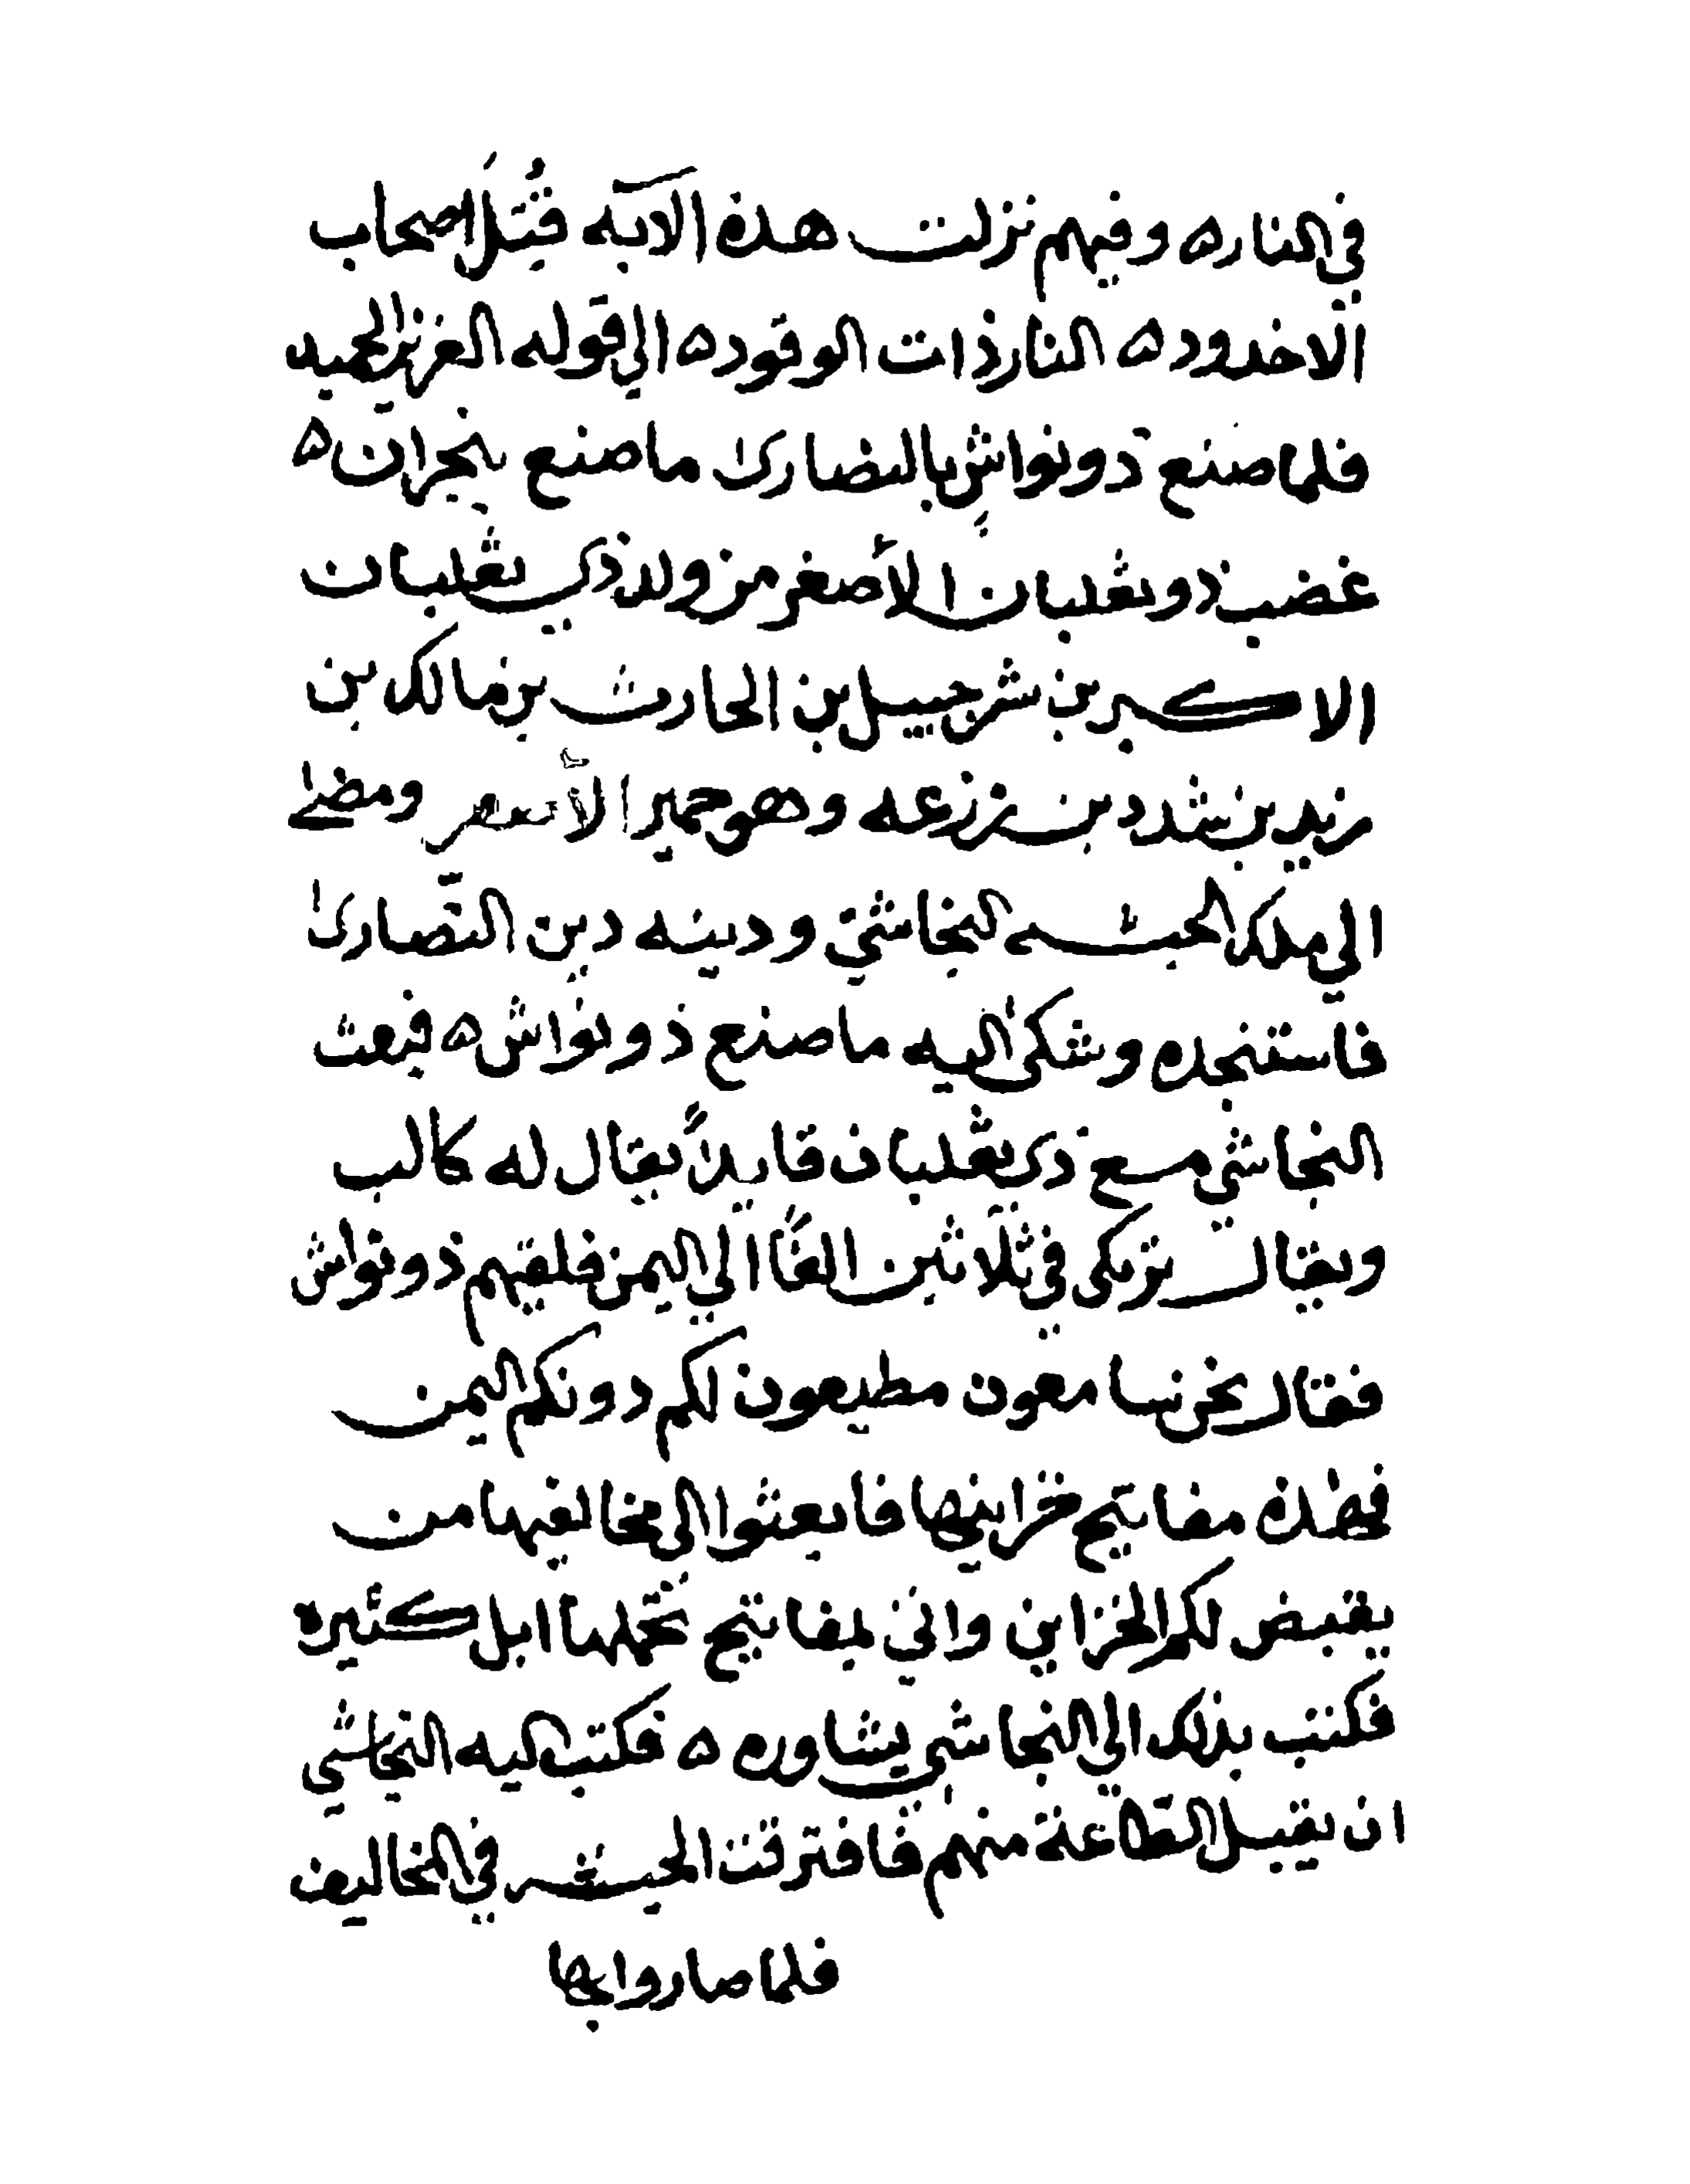 في النار ه وفيهم نزلت هذه الآية قُتِلَ أصحاب
الاخدود ه النار ذات الوقود ه الي قوله العزيز الحميد
فلما صنع ذو نواش بالنصارى ما صنع بنجران ه
غضب ذو ثعلبان الأصغر من ولد ذي ثعلبان
الاكبر بن شرحبيل بن الحارث بن مالك بن
زيد بن شدد بن زرعه وهو حمير الأصغر ومضى
الي ملك الحبشه النجاشي ودينه دين النصارى
فاستنجده وشكى اليه ما صنع ذو نواش ه فبعث
النجاشي مع ذي ثعلبان قايداً يقال له كالب
ويقال يزكى في ثلاثين الفًا الي اليمن فلقيهم ذو نواش
فقال نحن سامعون مطيعون لكم دونكم اليمن
فهذه مفاتيح خزاينها فابعثوا الى مخاليفها من
يقبض لكم الخزاين واتي بمفاتيح تحملها ابل كثيره
فكتب بذلك الي النجاشي يشاوره ه فكتب اليه النجاشي
ان يقبل الطاعة منهم فافترقت الحبشه في المخاليف
فلما صاروا بها